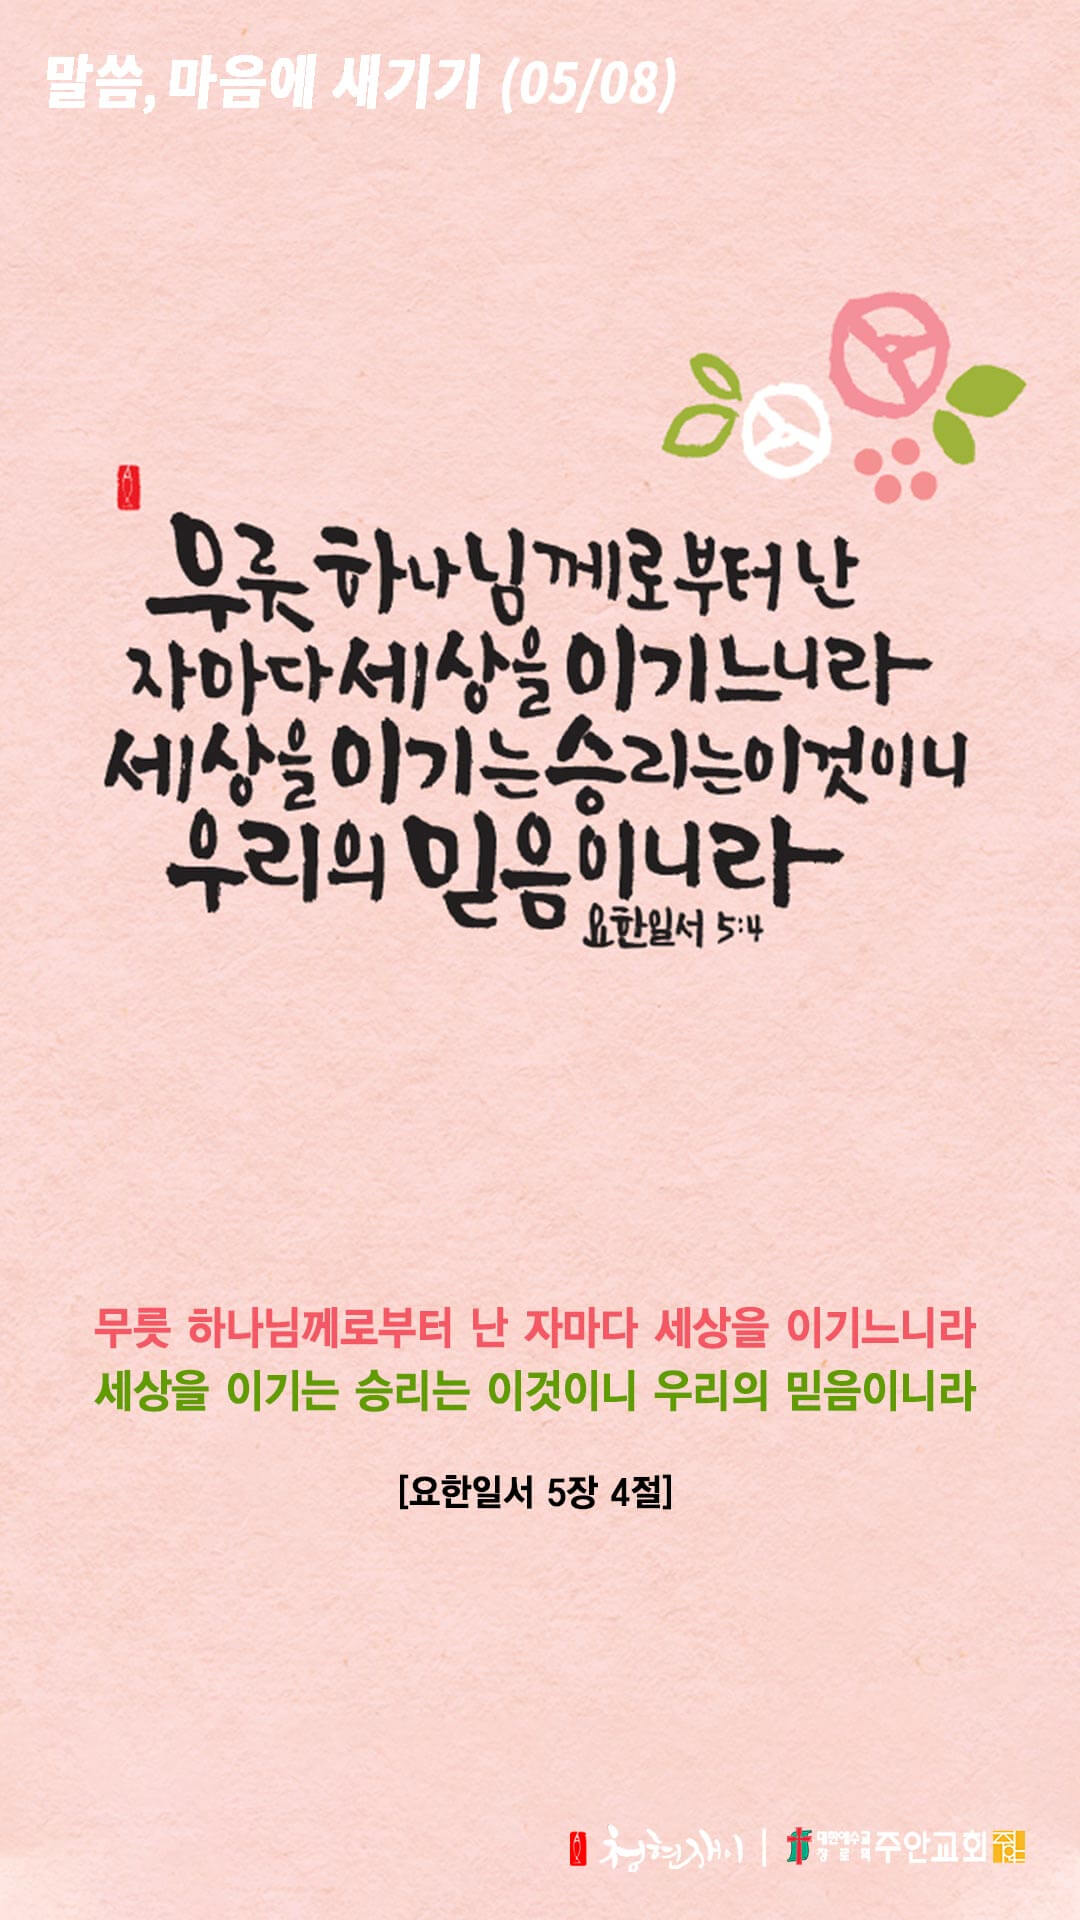 말씀, 마음에 새기기 (05/08)
무릇 하나님께로부터 난
자마다 세상을 이기느니라
세상을 이기는 승리는 이것이니
우리의 믿음이니라
요한일서 5:4
무릇 하나님께로부터 난 자마다 세상을 이기느니라
세상을 이기는 승리는 이것이니 우리의 믿음이니라
[요한일서 5장 4절]
청현재이 | 대한예수교장로회 주안교회